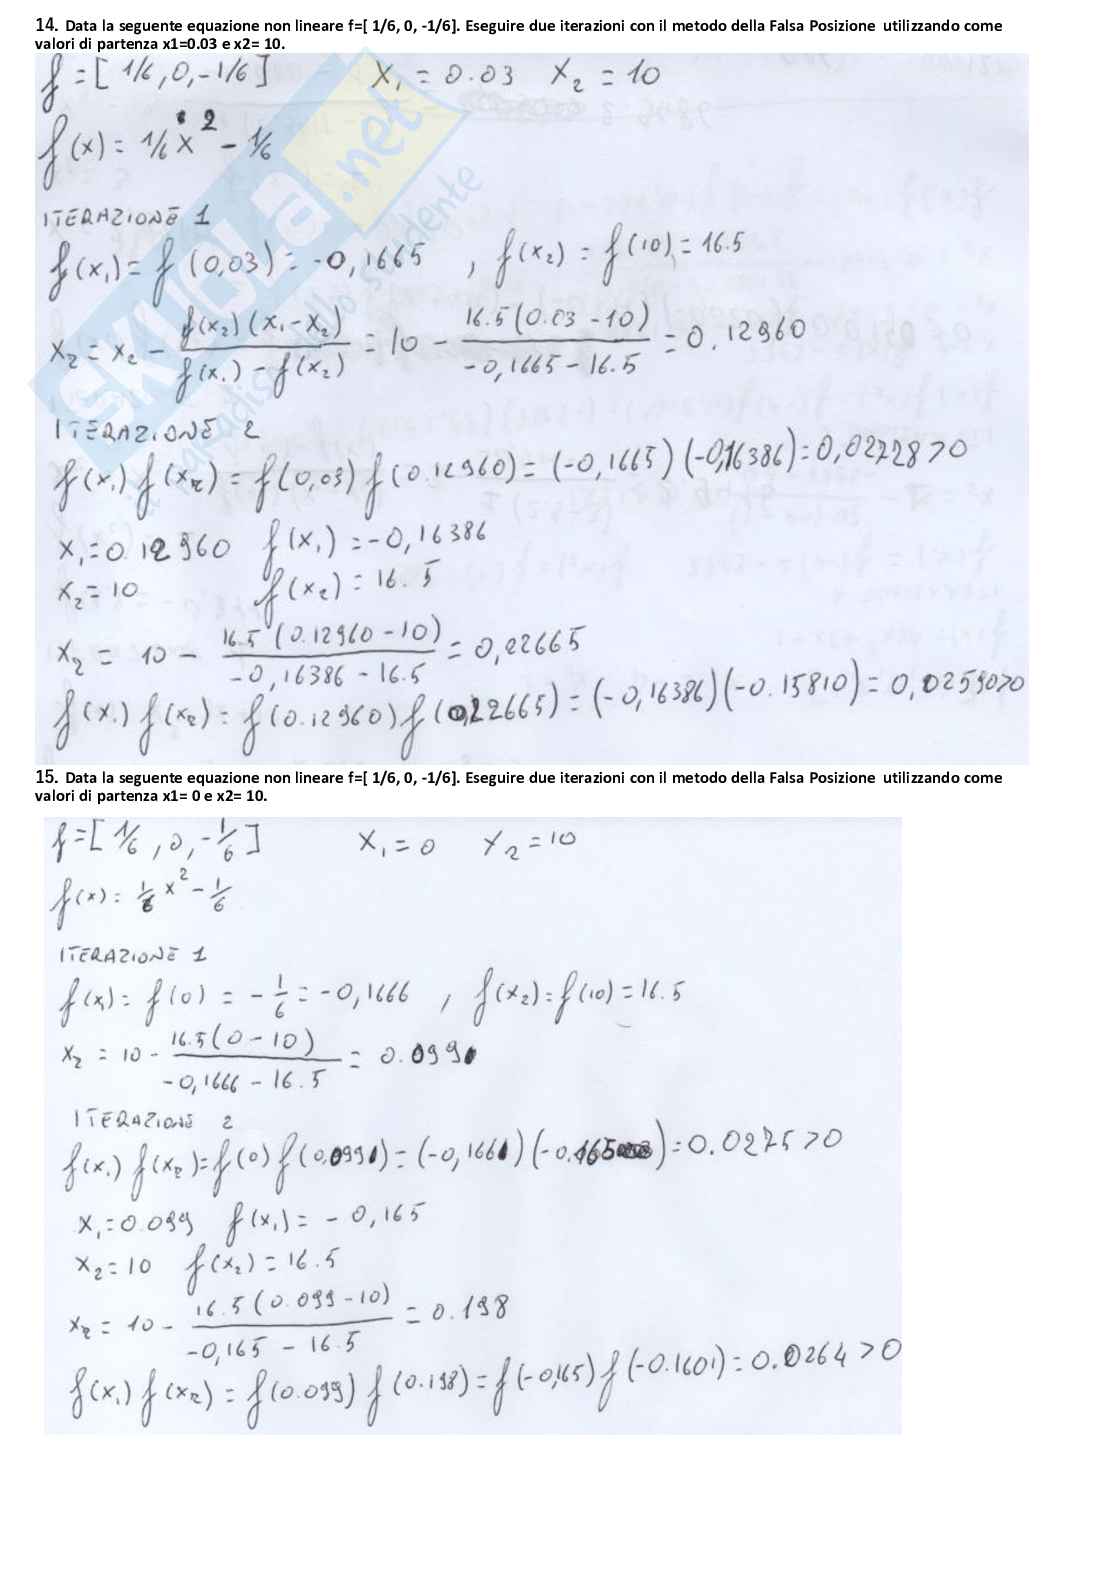 14. Data la seguente equazione non lineare f=[ 1/6, 0, -1/6]. Eseguire due iterazioni con il metodo della Falsa Posizione utilizzando come
valori di partenza x1=0.03 e x2= 10.
f = [ 1/6, 0, -1/6 ] X₁ = 0.03 X₂ = 10
f(x) = 1/6 x² - 1/6
ITERAZIONE 1
f(x₁) = f(0,03) = -0,1665 , f(x₂) = f(10) = 16.5
X₂ = x₂ - f(x₂)(x₁-x₂) / f(x₁) - f(x₂) = 10 - 16.5(0.03 - 10) / -0,1665 - 16.5 = 0.12960
ITERAZIONE 2
f(x₁) f(xᵣ) = f(0,03) f(0.12960) = (-0,1665)(-0,16386) = 0,02728 > 0
X₁ = 0.12960 f(x₁) = -0,16386
X₂ = 10 f(x₂) = 16.5
X₂ = 10 - 16.5(0.12960 - 10) / -0,16386 - 16.5 = 0,22665
f(x₁) f(xᵣ) = f(0.12960) f(0,22665) = (-0,16386)(-0.15810) = 0,02590>0
15. Data la seguente equazione non lineare f=[ 1/6, 0, -1/6]. Eseguire due iterazioni con il metodo della Falsa Posizione utilizzando come
valori di partenza x1= 0 e x2= 10.
f = [ 1/6, 0, -1/6 ] X₁ = 0 X₂ = 10
f(x) = 1/6 x² - 1/6
ITERAZIONE 1
f(x₁) = f(0) = -1/6 = -0,1666 , f(x₂) = f(10) = 16.5
X₂ = 10 - 16.5(0 - 10) / -0,1666 - 16.5 = 0.099
ITERAZIONE 2
f(x₁) f(xᵣ) = f(0) f(0,099) = (-0,166)(-0.165) = 0.0275 > 0
X₁ = 0.099 f(x₁) = -0,165
X₂ = 10 f(x₂) = 16.5
Xᵣ = 10 - 16.5(0.099 - 10) / -0,165 - 16.5 = 0.198
f(x₁) f(xᵣ) = f(0.099) f(0.198) = f(-0,165) f(-0.1601) = 0.0264 > 0
SKUOLA.net